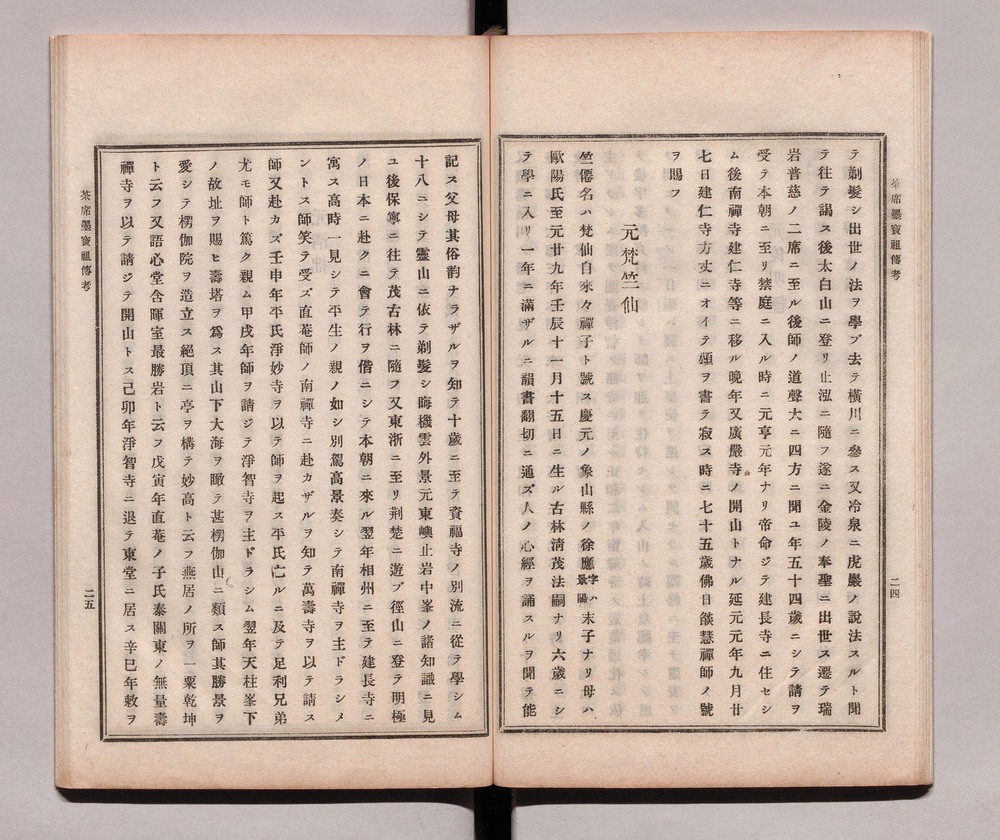 茶席墨寶祖傳考
二四
テ剃髮シ出世ノ法ヲ學ブ去テ橫川ニ參ス又冷泉ニ虎巖ノ說法スルト聞
テ往テ謁ス後太白山ニ登リ止泓ニ隨フ遂ニ金陵ノ奉聖ニ出世ス遷テ瑞
岩普慈ノ二席ニ至ル後師ノ道聲大ニ四方ニ聞ユ年五十四歲ニシテ請ヲ
受テ本朝ニ至リ禁庭ニ入ル時ニ元亨元年ナリ帝命ジテ建長寺ニ住セシ
ム後南禪寺建仁寺等ニ移ル晚年又廣嚴寺ノ開山トナル延元元年九月廿
七日建仁寺方丈ニオイテ頌ヲ書テ寂ス時ニ七十五歲佛日燄慧禪師ノ號
ヲ賜フ
元梵竺仙
竺僊名ハ梵仙自來々禪子ト號ス慶元ノ象山縣ノ徐應字ハ景陽末子ナリ母ハ
歐陽氏至元廿九年壬辰十一月十五日ニ生ル古林淸茂法嗣ナリ六歲ニシ
テ學ニ入リ一年ニ滿ザルニ韻書翻切ニ通ズ人ノ心經ヲ誦スルヲ聞テ能
記ス父母其俗韵ナラザルヲ知テ十歲ニ至テ資福寺ノ別流ニ從テ學シム
十八ニシテ靈山ニ依テ剃髮シ晦機雲外景元東嶼止岩中峯ノ諸知識ニ見
ユ後保寧ニ往テ茂古林ニ隨フ又東浙ニ至リ荆楚ニ遊ブ徑山ニ登テ明極
ノ日本ニ赴クニ會テ行ヲ偕ニシテ本朝ニ來ル翌年相州ニ至テ建長寺ニ
寓ス高時一見シテ平生ノ親ノ如シ別駕高景奏シテ南禪寺ヲ主ドラシメ
ントス師笑テ受ズ直菴師ノ南禪寺ニ赴カザルヲ知テ萬壽寺ヲ以テ請ス
師又赴カズ壬申年平氏淨妙寺ヲ以テ師ヲ起ス平氏亡ルニ及テ足利兄弟
尤モ師ト篤ク親ム甲戌年師ヲ請ジテ淨智寺ヲ主ドラシム翌年天柱峯下
ノ故址ヲ賜ヒ壽塔ヲ爲ス其山下大海ヲ瞰テ甚楞伽山ニ類ス師其勝景ヲ
愛シテ楞伽院ヲ造立ス絕頂ニ亭ヲ構テ妙高ト云フ燕居ノ所ヲ一粟乾坤
ト云フ又語心堂含暉室最勝岩ト云フ戊寅年直菴ノ子氏泰關東ノ無量壽
禪寺ヲ以テ請ジテ開山トス己卯年淨智寺ニ退テ東堂ニ居ス辛巳年敕ヲ
茶席墨寶祖傳考
二五